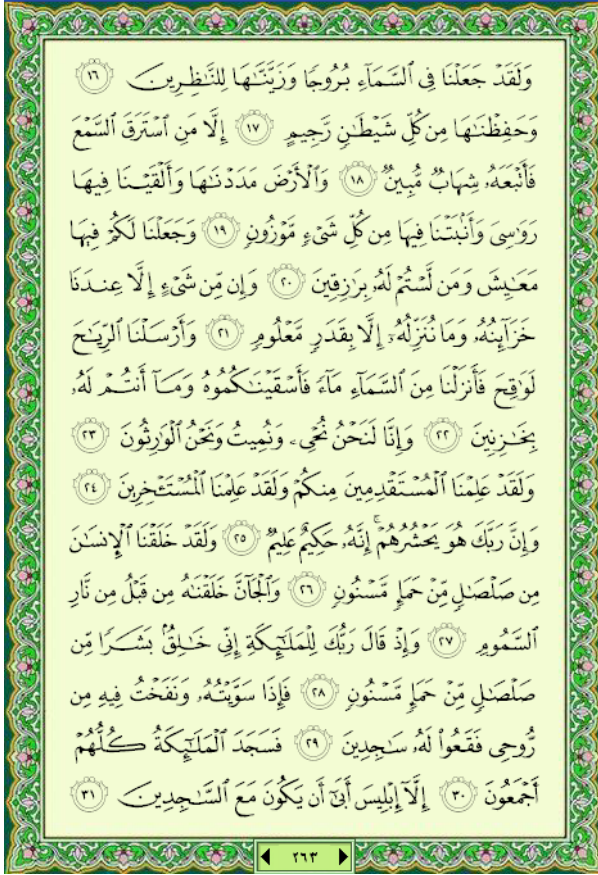 وَلَقَدۡ جَعَلۡنَا فِي ٱلسَّمَآءِ بُرُوجٗا وَزَيَّنَّٰهَا لِلنَّٰظِرِينَ ١٦
وَحَفِظۡنَٰهَا مِن كُلِّ شَيۡطَٰنٖ رَّجِيمٍ ١٧ إِلَّا مَنِ ٱسۡتَرَقَ ٱلسَّمۡعَ
فَأَتۡبَعَهُۥ شِهَابٞ مُّبِينٞ ١٨ وَٱلۡأَرۡضَ مَدَدۡنَٰهَا وَأَلۡقَيۡنَا فِيهَا
رَوَٰسِيَ وَأَنۢبَتۡنَا فِيهَا مِن كُلِّ شَيۡءٖ مَّوۡزُونٖ ١٩ وَجَعَلۡنَا لَكُمۡ فِيهَا
مَعَٰيِشَ وَمَن لَّسۡتُمۡ لَهُۥ بِرَٰزِقِينَ ٢٠ وَإِن مِّن شَيۡءٍ إِلَّا عِندَنَا
خَزَآئِنُهُۥ وَمَا نُنَزِّلُهُۥٓ إِلَّا بِقَدَرٖ مَّعۡلُومٖ ٢١ وَأَرۡسَلۡنَا ٱلرِّيَٰحَ
لَوَٰقِحَ فَأَنزَلۡنَا مِنَ ٱلسَّمَآءِ مَآءٗ فَأَسۡقَيۡنَٰكُمُوهُ وَمَآ أَنتُمۡ لَهُۥ
بِخَٰزِنِينَ ٢٢ وَإِنَّا لَنَحۡنُ نُحۡيِۦ وَنُمِيتُ وَنَحۡنُ ٱلۡوَٰرِثُونَ ٢٣
وَلَقَدۡ عَلِمۡنَا ٱلۡمُسۡتَقۡدِمِينَ مِنكُمۡ وَلَقَدۡ عَلِمۡنَا ٱلۡمُسۡتَـٔۡخِرِينَ ٢٤
وَإِنَّ رَبَّكَ هُوَ يَحۡشُرُهُمۡۚ إِنَّهُۥ حَكِيمٌ عَلِيمٞ ٢٥ وَلَقَدۡ خَلَقۡنَا ٱلۡإِنسَٰنَ
مِن صَلۡصَٰلٖ مِّنۡ حَمَإٖ مَّسۡنُونٖ ٢٦ وَٱلۡجَآنَّ خَلَقۡنَٰهُ مِن قَبۡلُ مِن نَّارِ
ٱلسَّمُومِ ٢٧ وَإِذۡ قَالَ رَبُّكَ لِلۡمَلَٰٓئِكَةِ إِنِّي خَٰلِقُۢ بَشَرٗا مِّن
صَلۡصَٰلٖ مِّنۡ حَمَإٖ مَّسۡنُونٖ ٢٨ فَإِذَا سَوَّيۡتُهُۥ وَنَفَخۡتُ فِيهِ مِن
رُّوحِي فَقَعُواْ لَهُۥ سَٰجِدِينَ ٢٩ فَسَجَدَ ٱلۡمَلَٰٓئِكَةُ كُلُّهُمۡ
أَجۡمَعُونَ ٣٠ إِلَّآ إِبۡلِيسَ أَبَىٰٓ أَن يَكُونَ مَعَ ٱلسَّٰجِدِينَ ٣١
٢٦٣